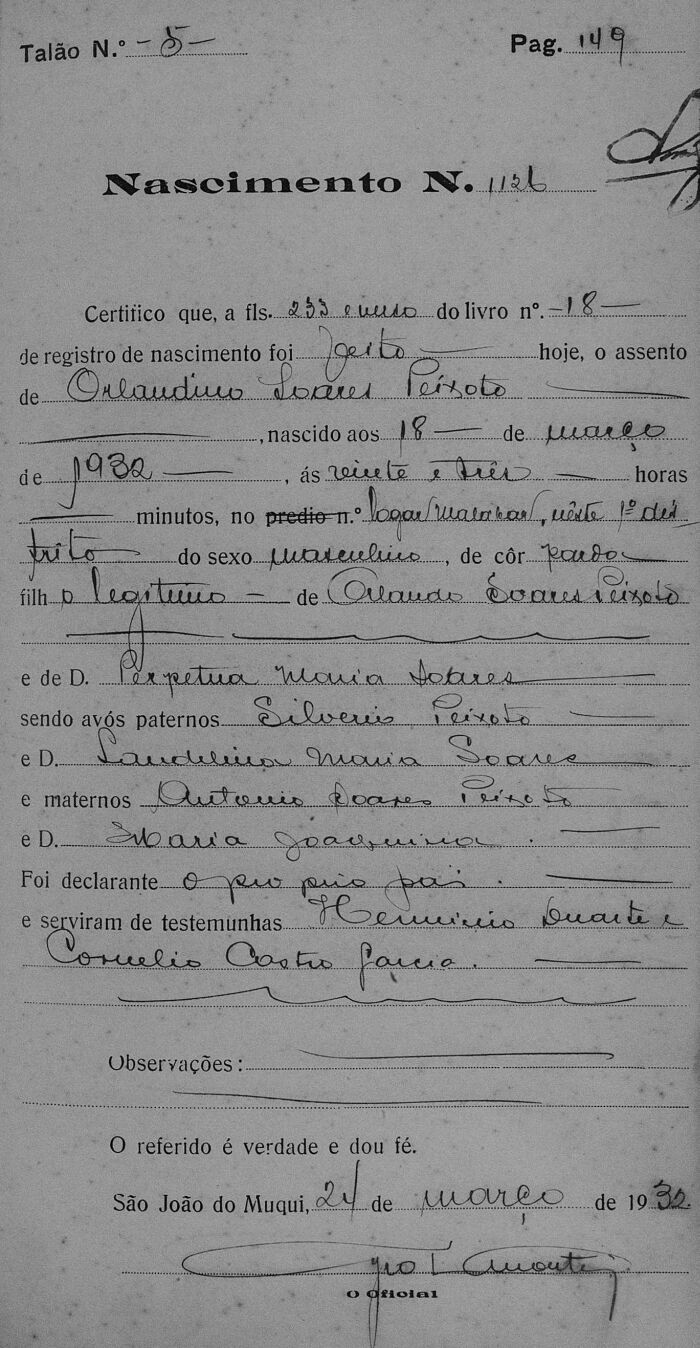 Talão N.º -5- Pag. 149
Nascimento N. 1126
Certifico que, a fls. 233 e verso do livro nº. -18-
de registro de nascimento foi feito hoje, o assento
de Orlandino Soares Peixoto
, nascido aos 18 de março
de 1932, ás veinte e três horas
minutos, no predio n.º logar, nêste 1º dis
trito do sexo masculino, de côr parda
filho legitimo de Orlando Soares Peixoto
e de D. Perpetua Maria Soares
sendo avós paternos Silverio Peixoto
e D. Laudelina Maria Soares
e maternos Antonio Soares Peixoto
e D. Maria Joaquina.
Foi declarante o proprio pai.
e serviram de testemunhas Herminio Duarte e
Cornelio Castro Garcia.
Observações:
O referido é verdade e dou fé.
São João do Muqui, 24 de março de 1932
O Oficial